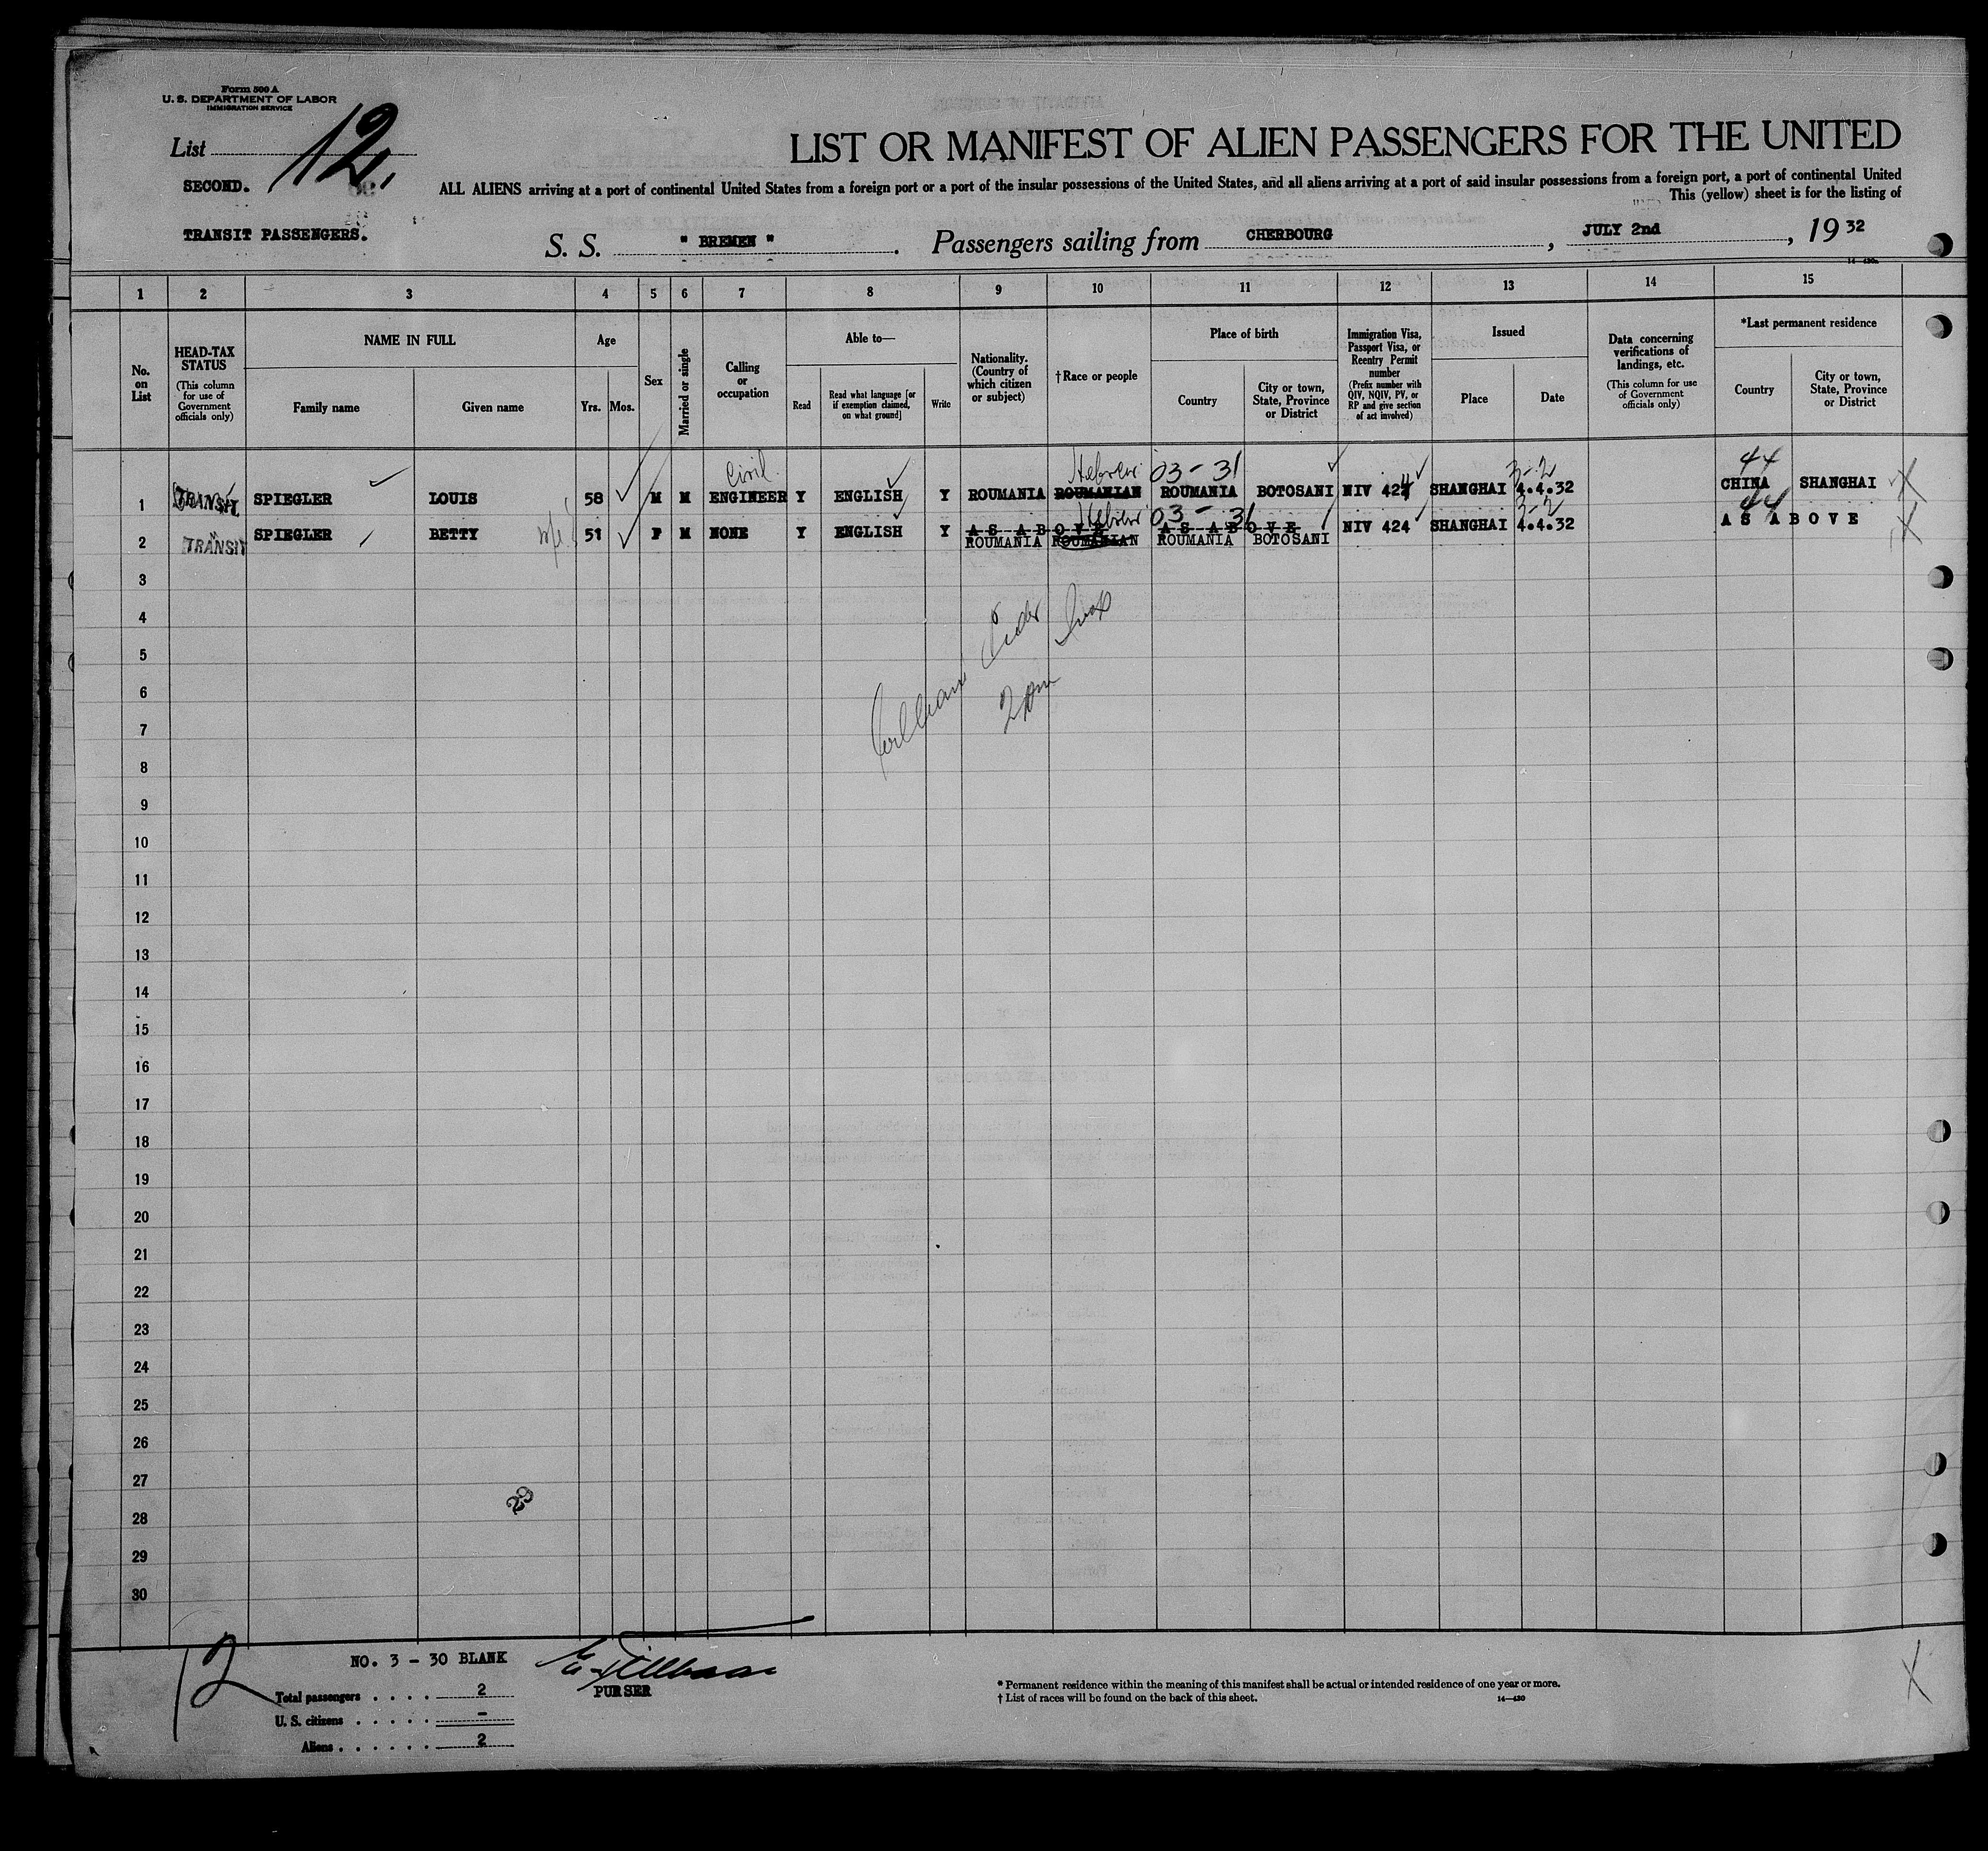 Form 500 A
U. S. DEPARTMENT OF LABOR
IMMIGRATION SERVICE
List 12.
LIST OR MANIFEST OF ALIEN PASSENGERS FOR THE UNITED
SECOND.
ALL ALIENS arriving at a port of continental United States from a foreign port or a port of the insular possessions of the United States, and all aliens arriving at a port of said insular possessions from a foreign port, a port of continental United
This (yellow) sheet is for the listing of
TRANSIT PASSENGERS.
S. S. " BREMEN " . Passengers sailing from CHERBOURG , JULY 2nd , 19 32
1 2 3 4 5 6 7 8 9 10 11 12 13 14 15
No. on List
HEAD-TAX STATUS
(This column for use of Government officials only)
NAME IN FULL
Family name
Given name
Age
Yrs. Mos.
Sex
Married or single
Calling or occupation
Able to—
Read
Read what language [or if exemption claimed, on what ground]
Write
Nationality. (Country of which citizen or subject)
†Race or people
Place of birth
Country
City or town, State, Province or District
Immigration Visa, Passport Visa, or Reentry Permit number
(Prefix number with QIV, NQIV, PV, or RP and give section of act involved)
Issued
Place
Date
Data concerning verifications of landings, etc.
(This column for use of Government officials only)
*Last permanent residence
Country
City or town, State, Province or District
Civil Hebrew 03-31 3-2 44
1 TRANSIT SPIEGLER LOUIS 58 M M ENGINEER Y ENGLISH Y ROUMANIA ROUMANIAN ROUMANIA BOTOSANI NIV 424 SHANGHAI 4.4.32 CHINA SHANGHAI
Hebrew 03-31 3-2 44
2 TRANSIT SPIEGLER BETTY 51 F M NONE Y ENGLISH Y AS ABOVE AS ABOVE NIV 424 SHANGHAI 4.4.32 AS ABOVE
ROUMANIA ROUMANIAN ROUMANIA BOTOSANI
3
4
5
6
7
8
9
10
11
12
13
14
15
16
17
18
19
20
21
22
23
24
25
26
27
28
29
30
William
29
12
NO. 3 - 30 BLANK
PURSER
Total passengers . . . . 2
U. S. citizens . . . . . -
Aliens . . . . . . 2
* Permanent residence within the meaning of this manifest shall be actual or intended residence of one year or more.
† List of races will be found on the back of this sheet.
14—430